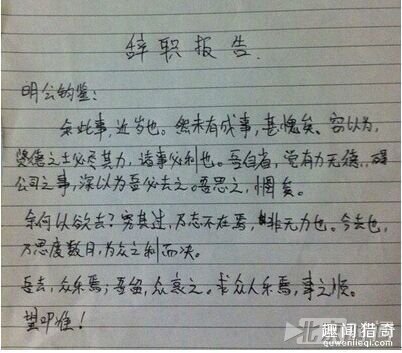 辞职报告
明公钧鉴:
余此事,近岁也。然未有成事,甚愧矣。窃以为,
贤德之士必尽其力,诸事必利也。吾自省,觉有力无德,碍
公司之事,深以为吾必去之。吾思之,惘矣。
余何以欲去?究其过,乃志不在焉,非无力也。今去也,
乃思度数月,为众之利而决。
吾去,众乐焉;吾留,众哀之。求众人乐焉,事之顺。
望叩准!
趣闻猎奇
quwenlieqi.com